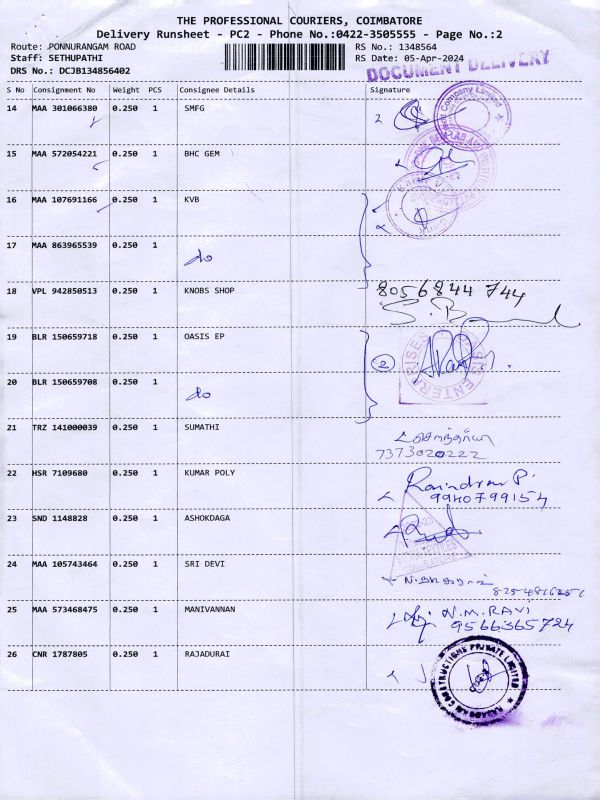 THE PROFESSIONAL COURIERS, COIMBATORE
Delivery Runsheet - PC2 - Phone No.:0422-3505555 - Page No.:2
Route: PONNURANGAM ROAD RS No.: 1348564
Staff: SETHUPATHI RS Date: 05-Apr-2024
DRS No.: DCJB134856402
DOCUMENT DELIVERY
S No Consignment No Weight PCS Consignee Details Signature
14 MAA 301066380 0.250 1 SMFG
15 MAA 572054221 0.250 1 BHC GEM
16 MAA 107691166 0.250 1 KVB
17 MAA 863965539 0.250 1
do
18 VPL 942850513 0.250 1 KNOBS SHOP 8056844744
19 BLR 150659718 0.250 1 OASIS EP
2
OASIS ENTERPRISES
20 BLR 150659708 0.250 1
do
21 TRZ 141000039 0.250 1 SUMATHI
7373020222
22 HSR 7109680 0.250 1 KUMAR POLY Ravindran P.
9940799154
23 SND 1148828 0.250 1 ASHOKDAGA
COIMBATORE
24 MAA 105743464 0.250 1 SRI DEVI
25 MAA 573468475 0.250 1 MANIVANNAN N.M.RAVI
9566365724
26 CNR 1787805 0.250 1 RAJADURAI
CONSTRUCTIONS PRIVATE LIMITED